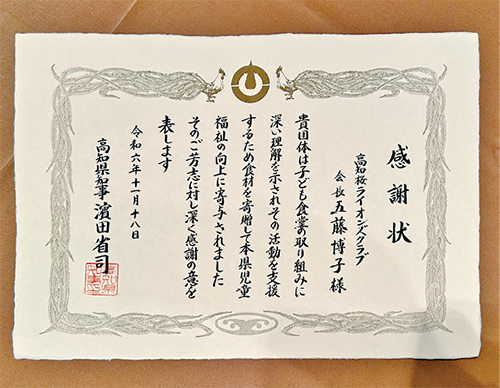 感謝状
高知桜ライオンズクラブ
会長 五藤博子様
貴団体は子ども食堂の取り組みに
深い理解を示されその活動を支援
するため食材を寄贈して本県児童
福祉の向上に寄与されました
そのご芳志に対し深く感謝の意を
表します
令和六年十一月十八日
高知県知事 濱田省司